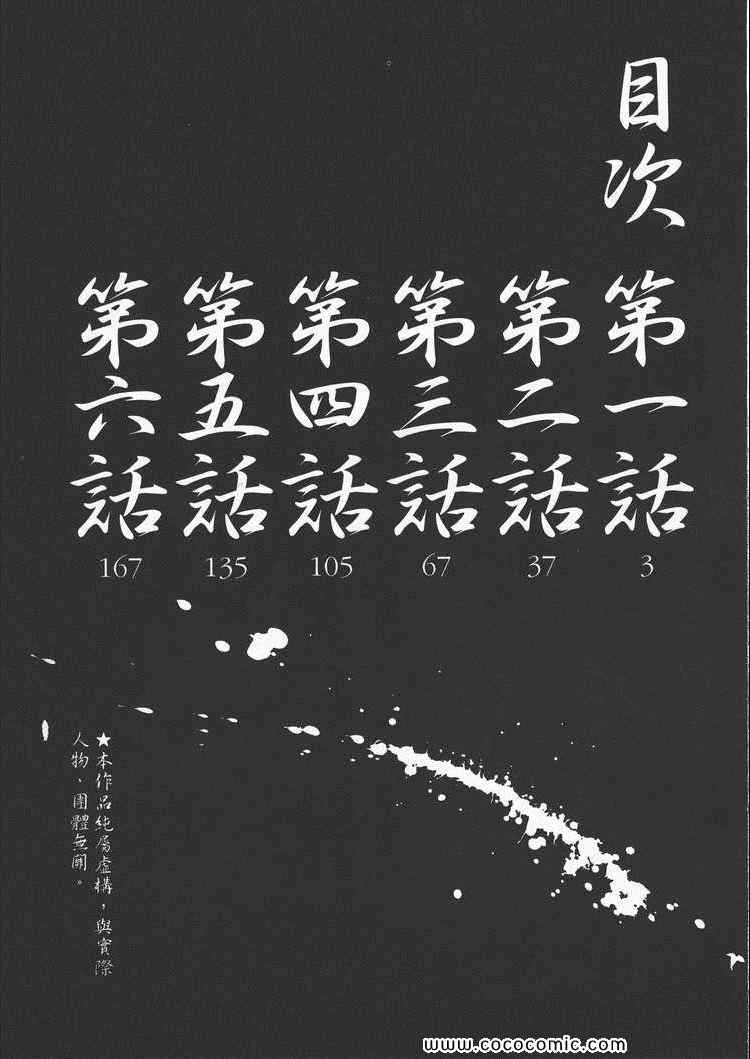 目次
第一話
3
第二話
37
第三話
67
第四話
105
第五話
135
第六話
167
★本作品純屬虛構，與實際
人物、團體無關。
www.cococomic.com